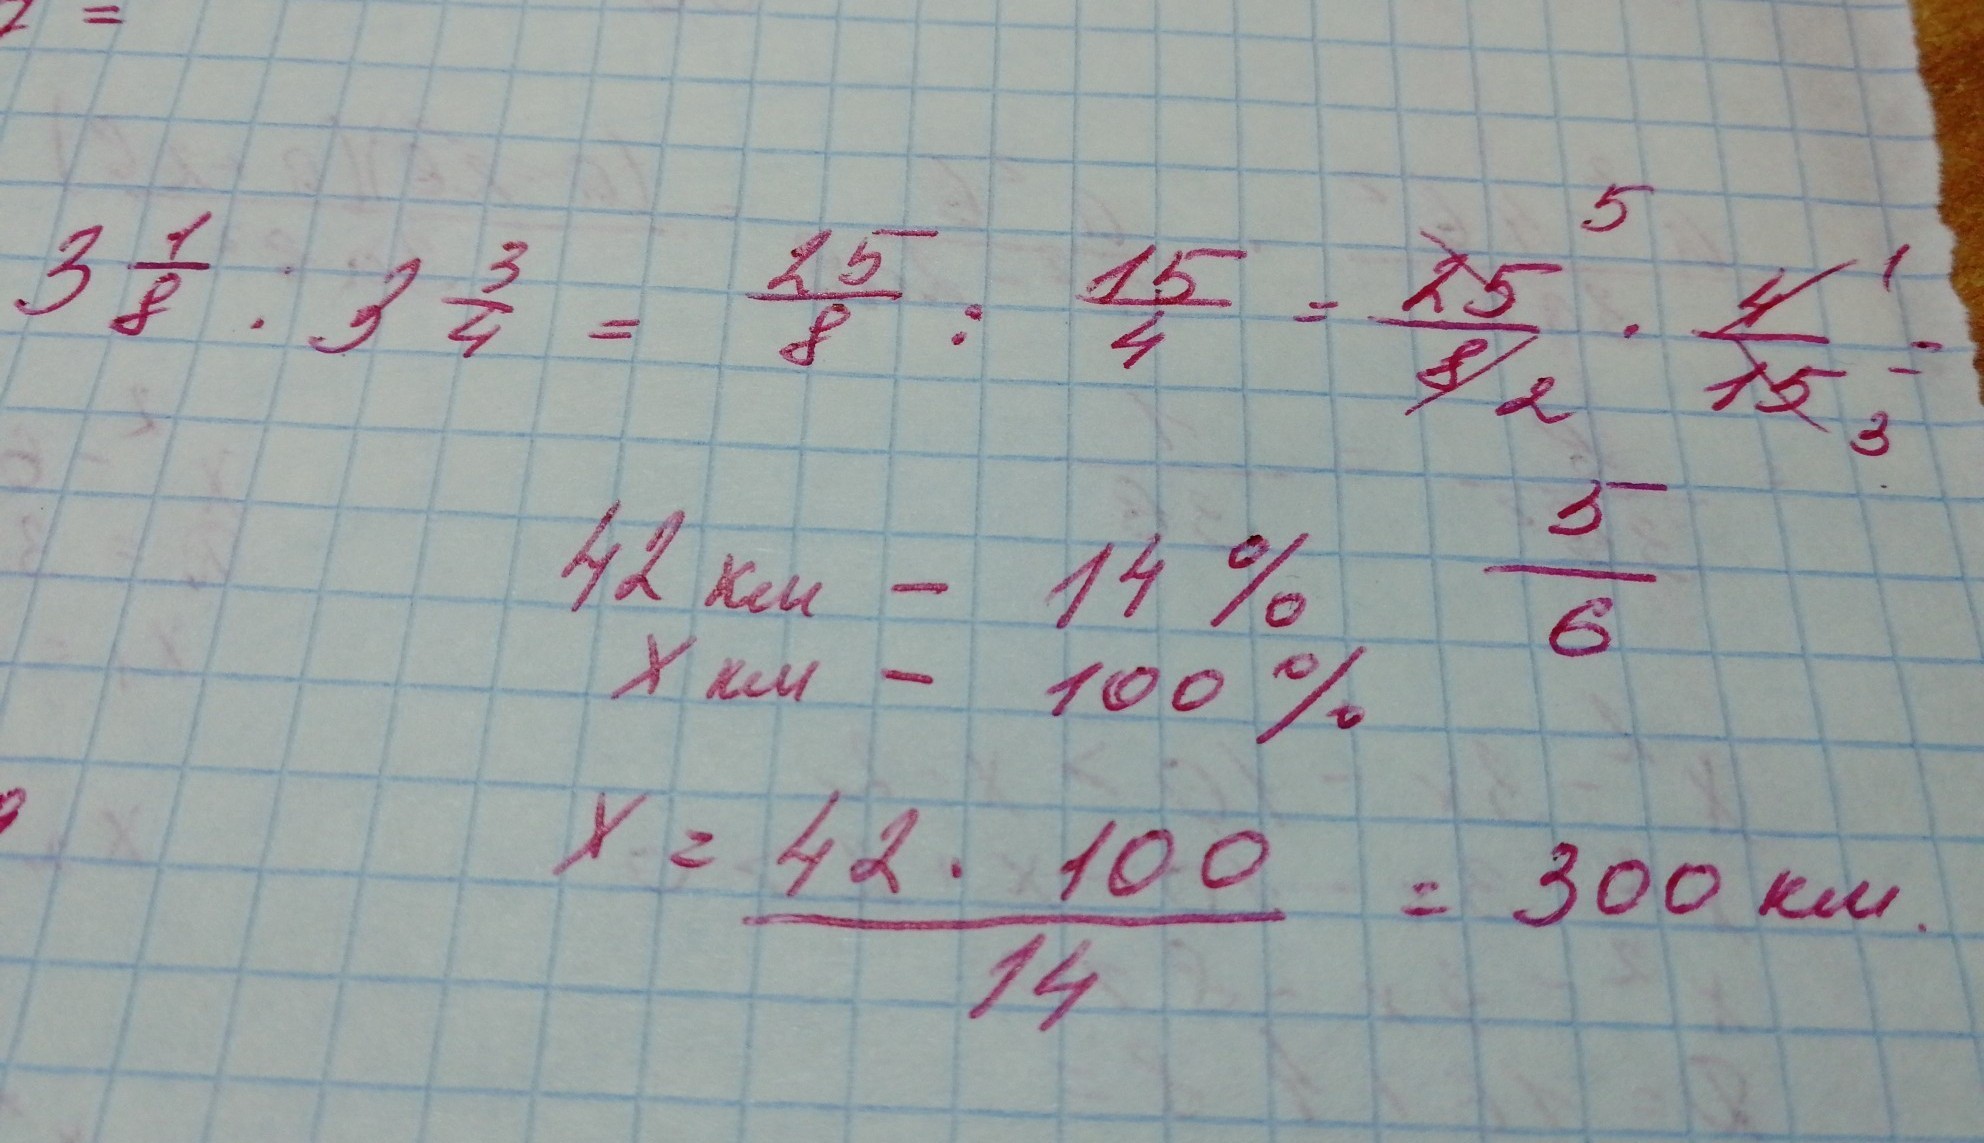 =
3 1/8 : 3 3/4 = 25/8 : 15/4 = 25/8 · 4/15 =
5 1
2 3
5/6
42 км - 14 %
х км - 100 %
х = 42 · 100 / 14 = 300 км.